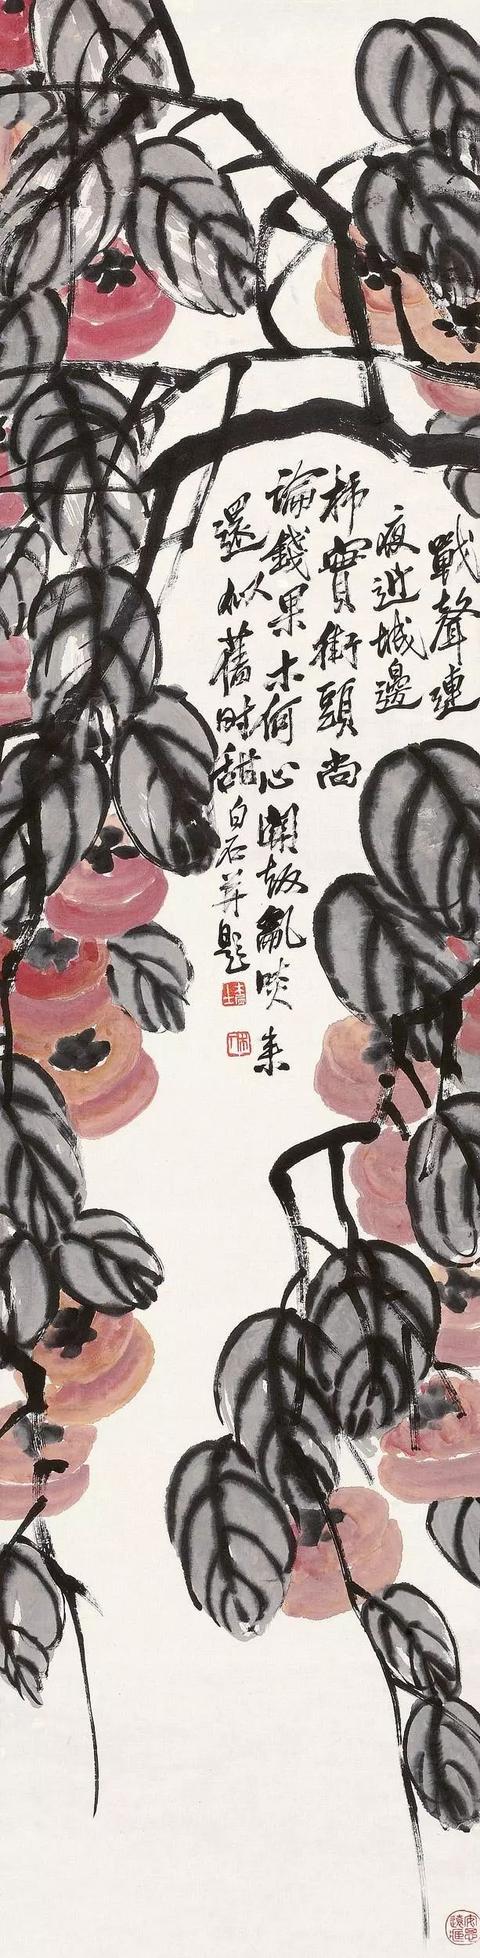 戰聲連
夜近城邊
柿實街頭尚
論錢果木何心關叛亂啖來
還似舊時甜白石并題